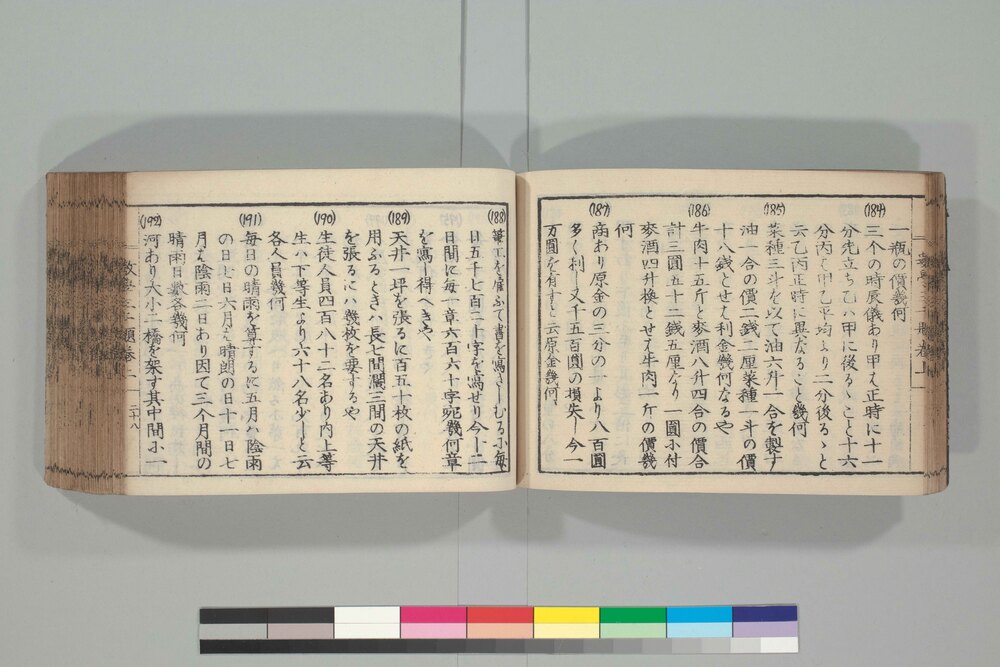 一瓶の價幾何
(184)
三个の時辰儀あり甲ハ正時に十一
分先立ち乙ハ甲に後るゝこと十六
分丙ハ甲乙平均より二分後るゝと
云乙丙正時に異なること幾何
(185)
菜種三斗を以て油六升一合を製す
油一合の價二錢二厘菜種一斗の價
十八錢とせハ利金幾何なるや
(186)
牛肉十五斤と麥酒八升四合の價合
計三圓五十二錢五厘なり一圓ニ付
麥酒四升換とせハ牛肉一斤の價幾
何
(187)
商あり原金の三分の一より八百圓
多く利し又千五百圓の損失し今一
万圓を有すと云原金幾何
(188)
筆工を雇ふて書を寫さしむるに毎
日五千七百二十字を寫せり今十二
日間に毎一章六百六十字宛幾何章
を寫し得へきや
(189)
天井一坪を張るに百五十枚の紙を
用ふるときハ長七間濶三間の天井
を張るにハ幾枚を要するや
(190)
生徒人員四百八十二名あり内上等
生ハ下等生より六十八名少しと云
各人員幾何
(191)
毎日の晴雨を算するに五月ハ陰雨
の日七日六月ハ晴朗の日十一日七
月ハ陰雨二日あり因て三个月間の
晴雨日數各幾何
(192)
河あり大小二橋を架す其中間ニ一
二十八